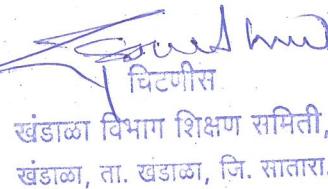 चिटणीस
खंडाळा विभाग शिक्षण समिती,
खंडाळा, ता. खंडाळा, जि. सातारा